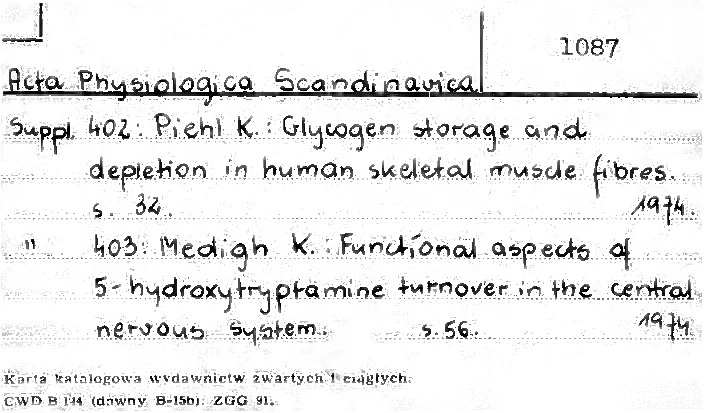 1087
Acta Physiologica Scandinavica
Suppl. 402: Piehl K.: Glycogen storage and
depletion in human skeletal muscle fibres.
s. 32. 1974.
" 403: Medigh K.: Functional aspects of
5-hydroxytryptamine turnover in the central
nervous system. s. 56. 1974
Karta katalogowa wydawnictw zwartych i ciągłych.
CWD B 144 (dawny B-15b). ZGG 91.